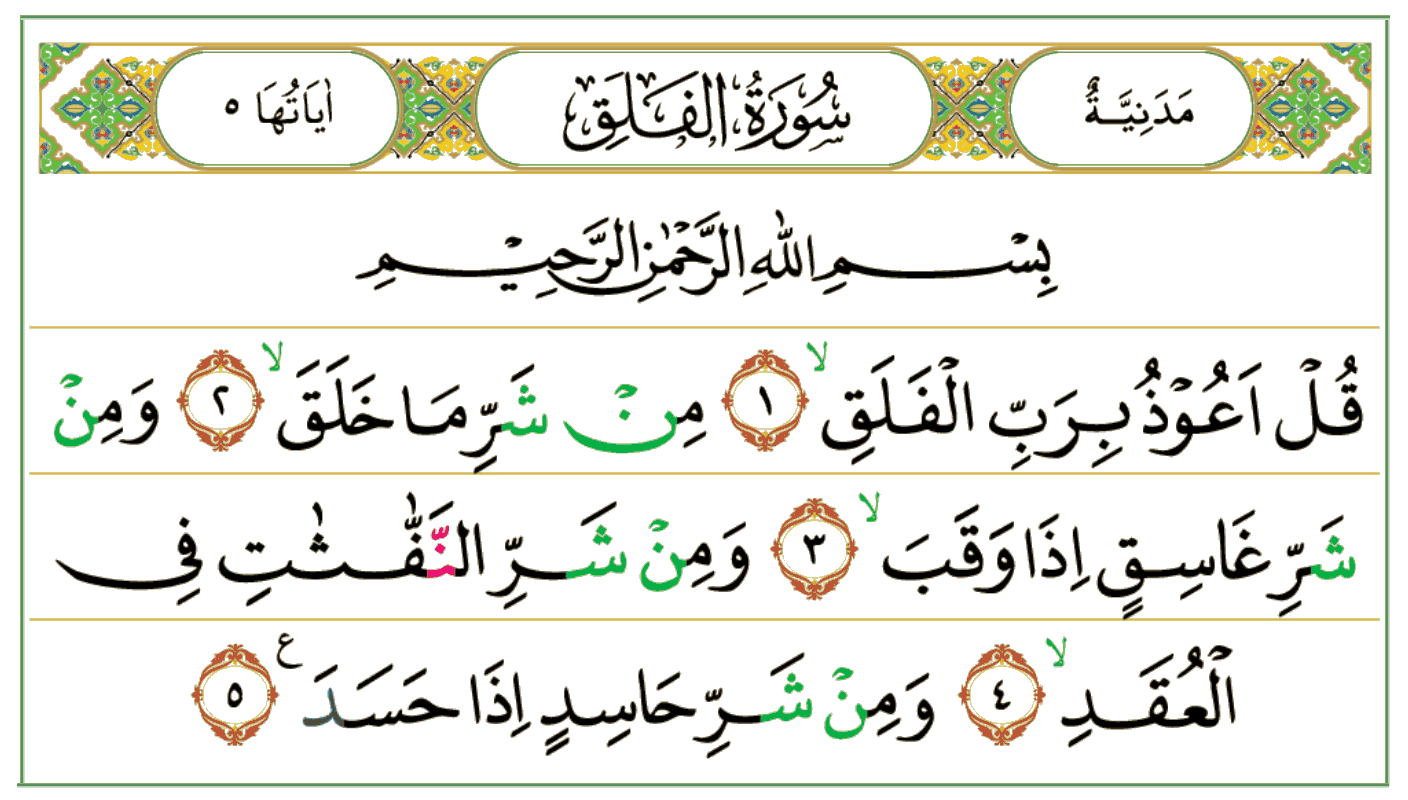 مَدَنِيَّةٌ سُورَةُ الفَلَقِ اٰيَاتُهَا ٥
بِسْمِ اللّٰهِ الرَّحْمٰنِ الرَّحِيْمِ
قُلْ اَعُوْذُ بِرَبِّ الْفَلَقِۙ ١ مِنْ شَرِّ مَا خَلَقَۙ ٢ وَمِنْ
شَرِّ غَاسِقٍ اِذَا وَقَبَۙ ٣ وَمِنْ شَرِّ النَّفّٰثٰتِ فِى
الْعُقَدِۙ ٤ وَمِنْ شَرِّ حَاسِدٍ اِذَا حَسَدَ ع ٥